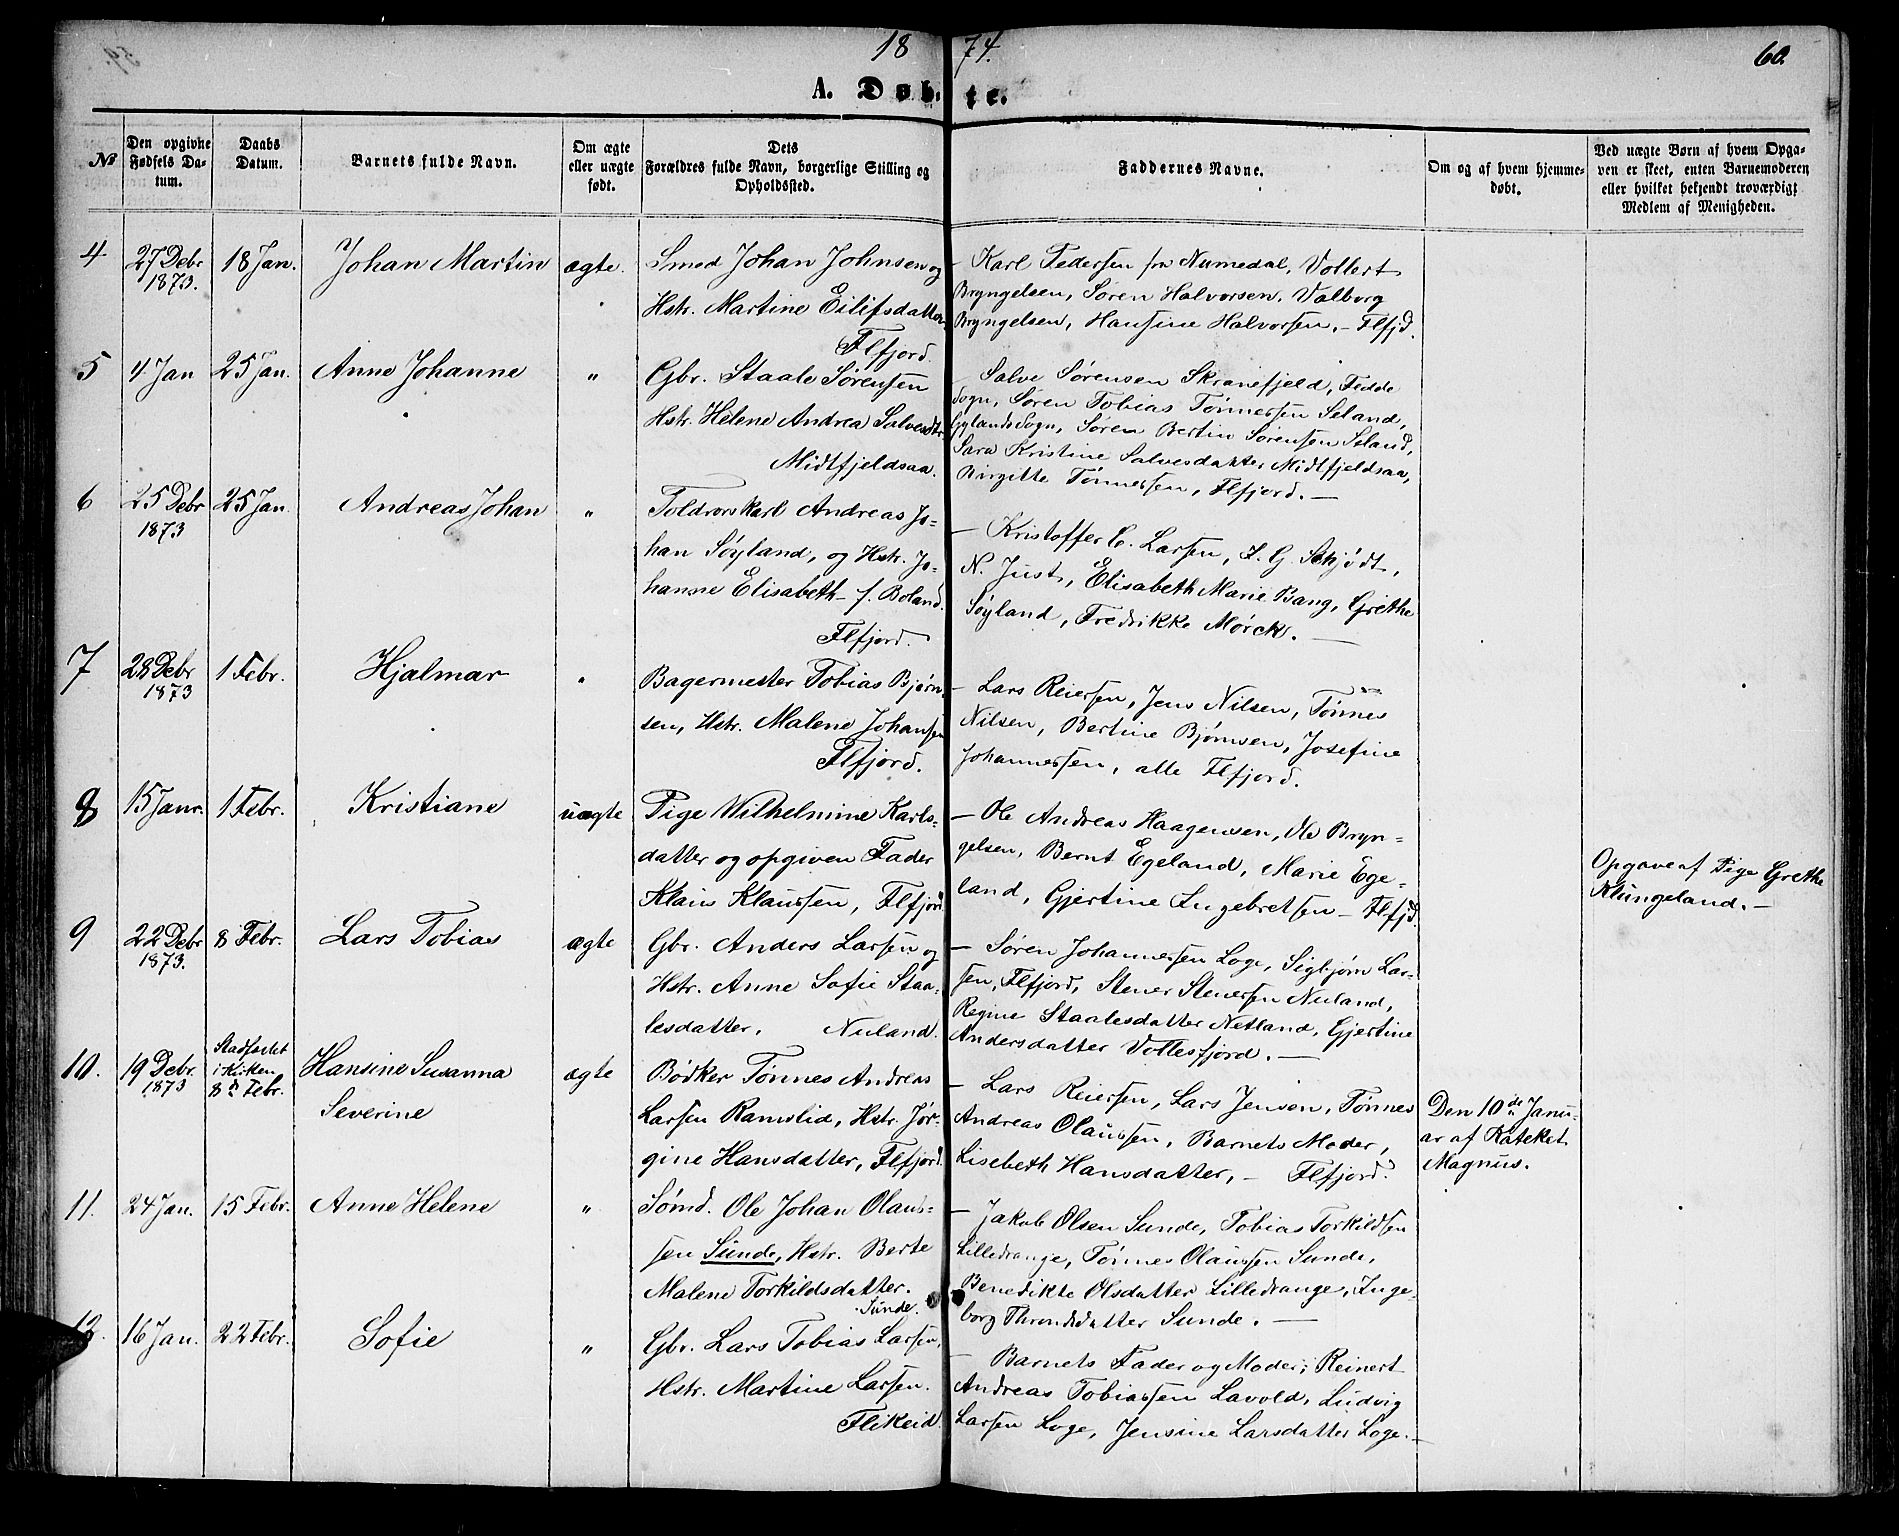 18 74. 60.
A. Døb te.
No
Den opgivne Fødsels Datum.
Daabs Datum.
Barnets fulde Navn.
Om ægte eller uægte født.
Dets Forældres fulde Navn, borgerlige Stilling og Opholdssted.
Faddernes Navne.
Om og af hvem hjemmedøbt.
Ved uægte Børn af hvem Opgaven er skeet, enten Barnemoderen eller hvilket bekjendt troværdigt Medlem af Menigheden.
4 27 Debr 1873. 18 Jan. Johan Martin ægte.
Smed Johan Johnsen og
Hstr. Martine Eilifsdatter
Flfjord.
– Karl Pedersen fra Numedal, Vollert
Bryngelsen, Søren Halvorsen, Valborg
Bryngelsen, Hansine Halvorsen. – Flfjd.
5 4 Jan 25 Jan. Anne Johanne "
Gbr. Staale Sørensen
Hstr. Helene Andrea Salvesdtr.
Midtfjeldsaa.
– Salve Sørensen Skranefjeld, Fedde
Sogn, Søren Tobias Tønnessen Seland,
Gylands Sogn, Søren Bertin Sørensen Seland,
Sara Kristine Salvesdatter Midtfjeldsaa,
Birgitte Tønnessen, Flfjord. –
6 25 Debr 1873 25 Jan. Andreas Johan "
Toldrorskarl Andreas Jo=
han Søyland, og Hstr. Jo=
hanne Elisabeth f. Boland.
Flfjord.
– Kristoffer C. Larsen, L. G. Schjødt,
N. Just, Elisabeth Marie Bang, Grethe
Søyland, Fredrikke Mørck. –
7 28 Debr 1873 1 Febr. Hjalmar "
Bagermester Tobias Bjørn
sen, Hstr. Malene Johansen
Flfjord.
– Lars Reiersen, Jens Nilsen, Tønnes
Nilsen, Bertine Bjørnsen, Josefine
Johannessen, alle Flfjord.
8 15 Janr. 1 Febr. Kristiane uægte
Pige Wilhelmine Karls=
datter og opgiven Fader
Klaus Klaussen, Flfjord
– Ole Andreas Haagensen, Ole Bryn=
gelsen, Bernt Egeland, Marie Ege=
land, Gjertine Ingebretsen – Flfjd.
Opgave af Pige Grethe
Klungeland. –
9 22 Debr 1873. 8 Febr. Lars Tobias ægte
Gbr. Anders Larsen og
Hstr. Anne Sofie Staa=
lesdatter. Nuland.
– Søren Johannessen Loge, Sigbjørn Lar=
sen, Flfjord, Stener Stenersen Nuland,
Regine Staalesdatter Netland, Gjertine
Andersdatter Vollesfjord. –
10. 19 Debr. 1873 Stadfæstet i Kirken 8de Febr. Hansine Susanna
Severine ægte
Bødker Tønnes Andreas
Larsen Ramslid, Hstr. Jør=
gine Hansdatter, Flfjord.
– Lars Reiersen, Lars Jensen, Tønnes
Andreas Olaussen, Barnets Moder,
Lisebeth Hansdatter, – Flfjord.
Den 10de Janu=
ar af Kateket
Magnus.
11. 24 Jan. 15 Febr. Anne Helene "
Sømd. Ole Johan Olaus=
sen Sunde, Hstr. Berte
Malene Torkildsdatter.
Sunde.
– Jakob Olsen Sunde, Tobias Torkildsen
Lilledrange, Tønnes Olaussen Sunde,
Benedikte Olsdatter Lilledrange, Inge=
borg Throndsdatter Sunde. –
12. 16 Jan. 22 Febr. Sofie "
Gbr. Lars Tobias Larsen,
Hstr. Martine Larsen.
Flikeid.
– Barnets Fader og Moder, Reinert
Andreas Tobiassen Lavold, Ludvig
Larsen Loge, Jensine Larsdatter Loge. –